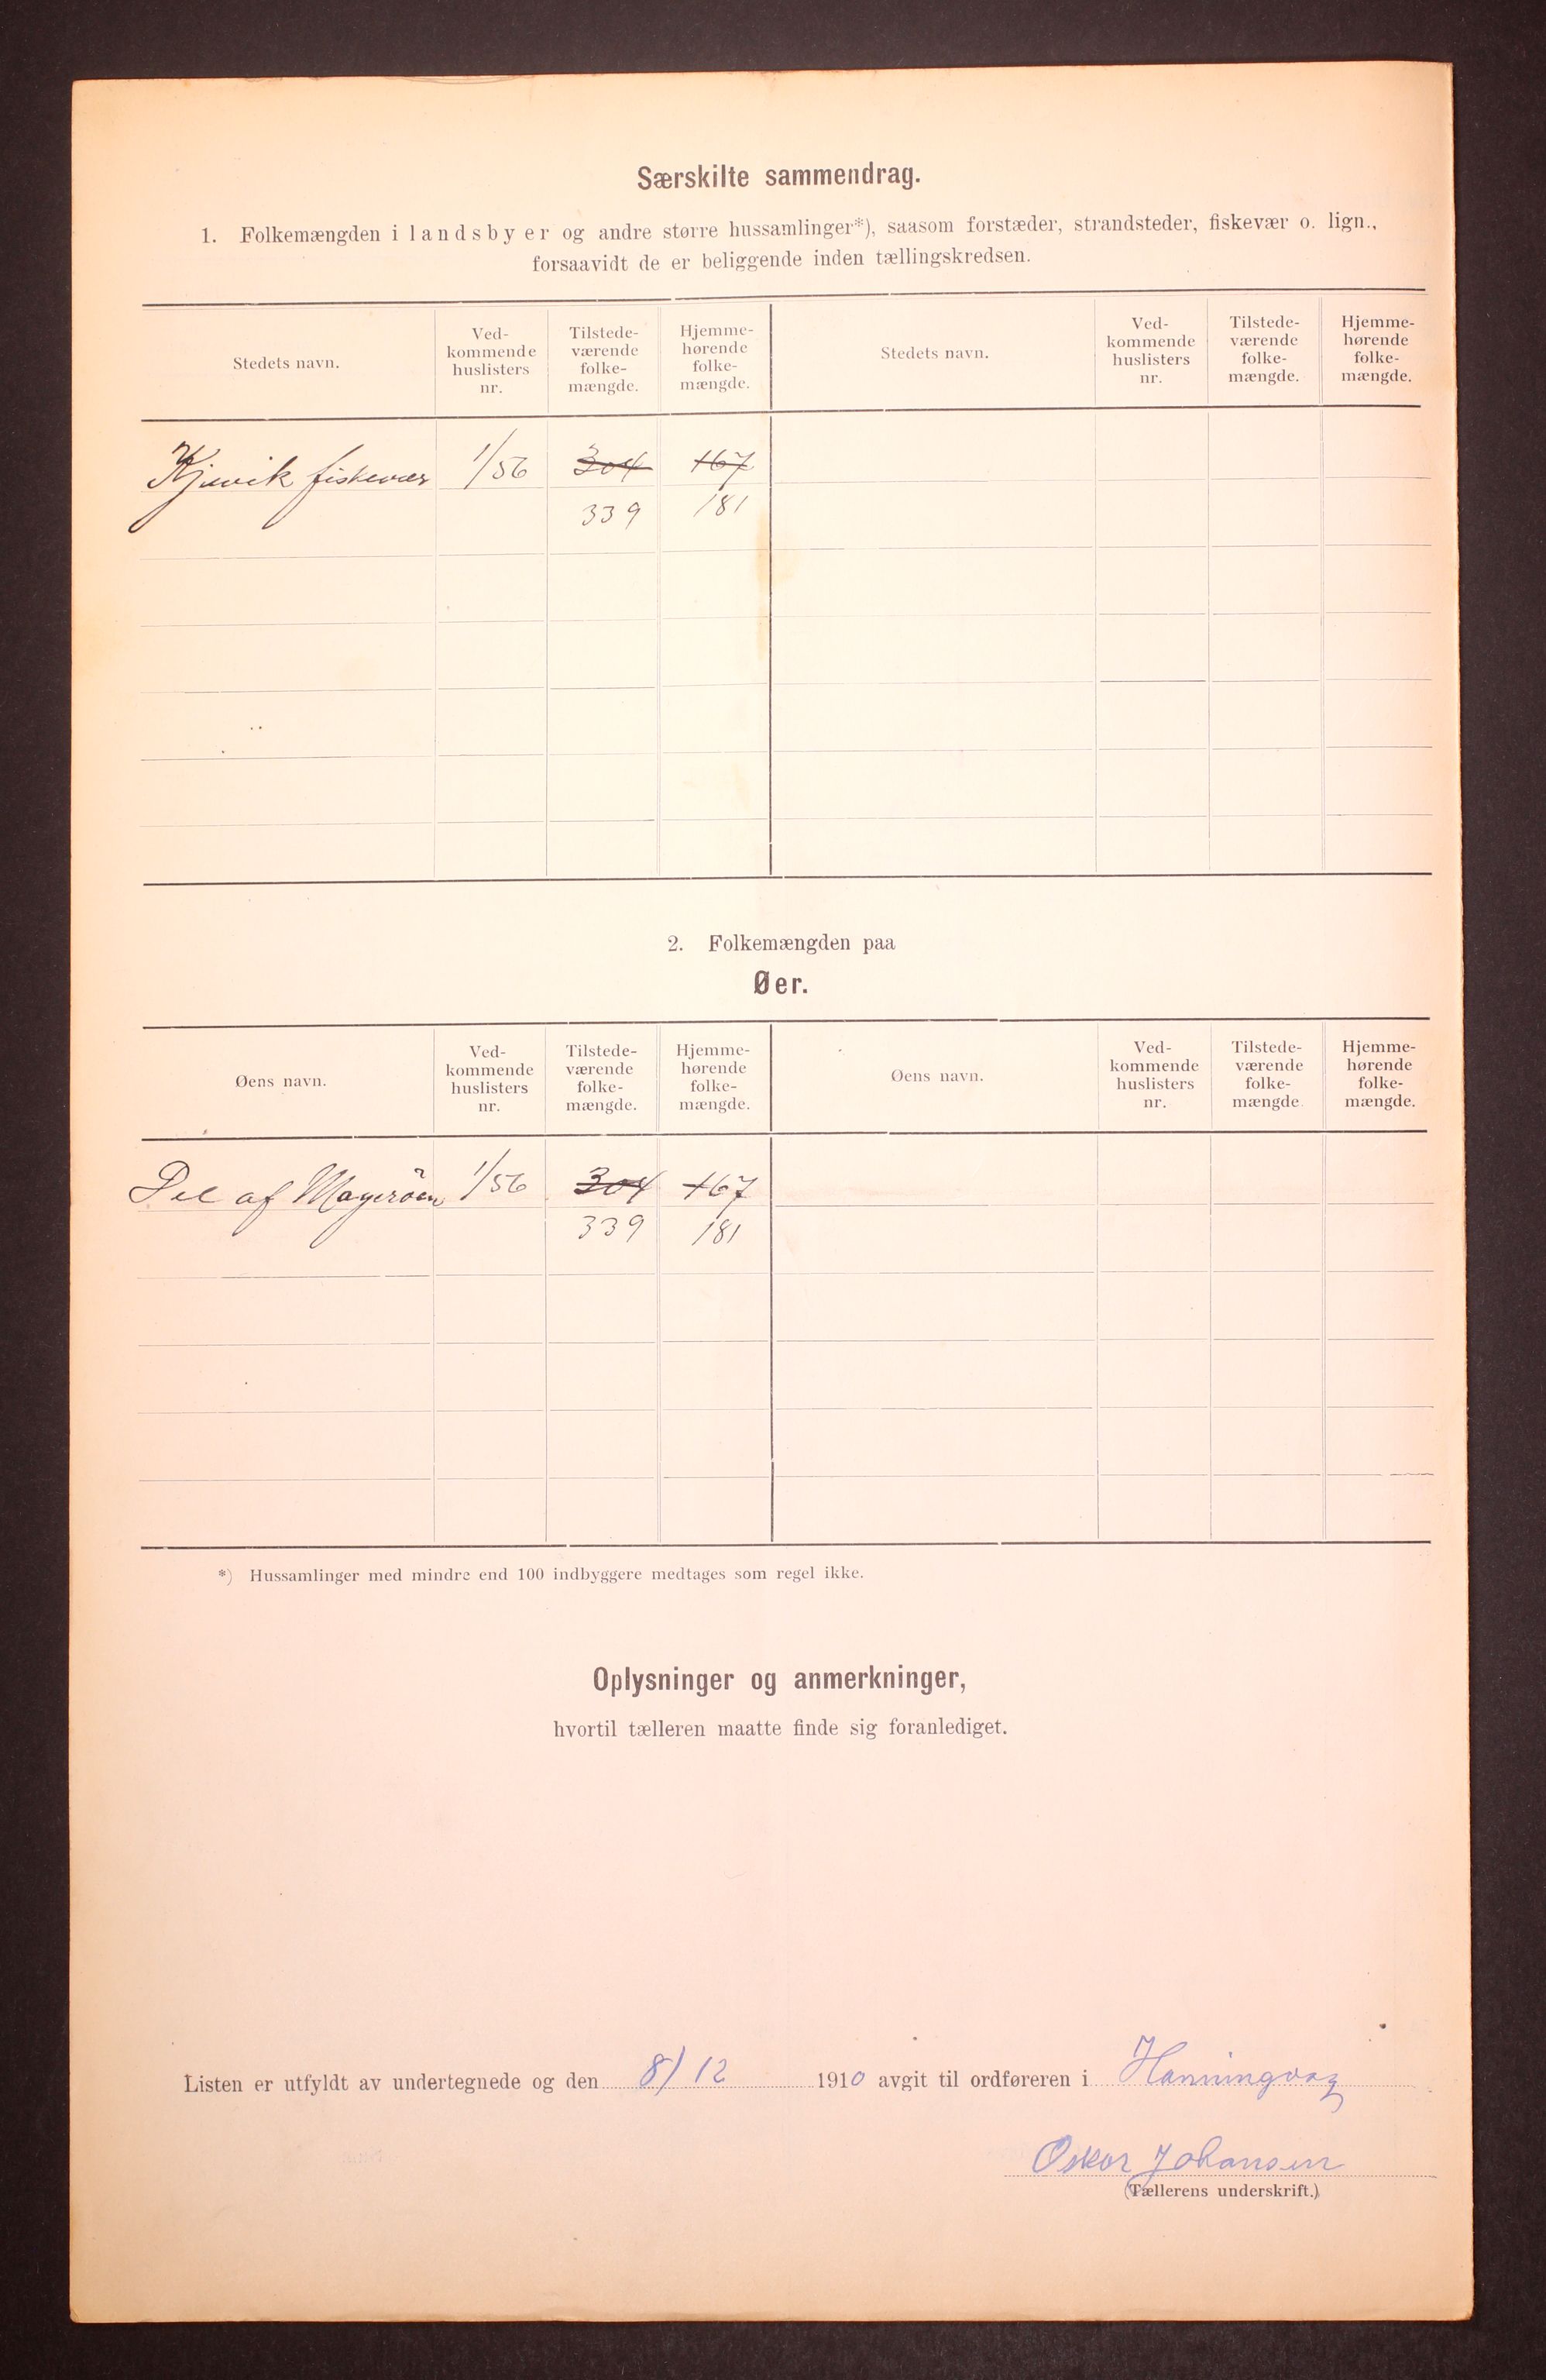 Særskilte sammendrag.
1. Folkemængden i landsbyer og andre større hussamlinger*), saasom forstæder, strandsteder, fiskevær o. lign.,
forsaavidt de er beliggende inden tællingskredsen.
Stedets navn. Ved-kommende huslisters nr. Tilstede-værende folke-mængde. Hjemme-hørende folke-mængde. Stedets navn. Ved-kommende huslisters nr. Tilstede-værende folke-mængde. Hjemme-hørende folke-mængde.
Kjelvik fiskevær 1/56 304 167
339 181
2. Folkemængden paa
Øer.
Øens navn. Ved-kommende huslisters nr. Tilstede-værende folke-mængde. Hjemme-hørende folke-mængde. Øens navn. Ved-kommende huslisters nr. Tilstede-værende folke-mængde Hjemme-hørende folke-mængde.
Del af Magerøen 1/56 304 167
339 181
*) Hussamlinger med mindre end 100 indbyggere medtages som regel ikke.
Oplysninger og anmerkninger,
hvortil tælleren maatte finde sig foranlediget.
Listen er utfyldt av undertegnede og den 8/12 1910 avgit til ordføreren i Honningvaag
Oskar Johansen
(Tællerens underskrift.)